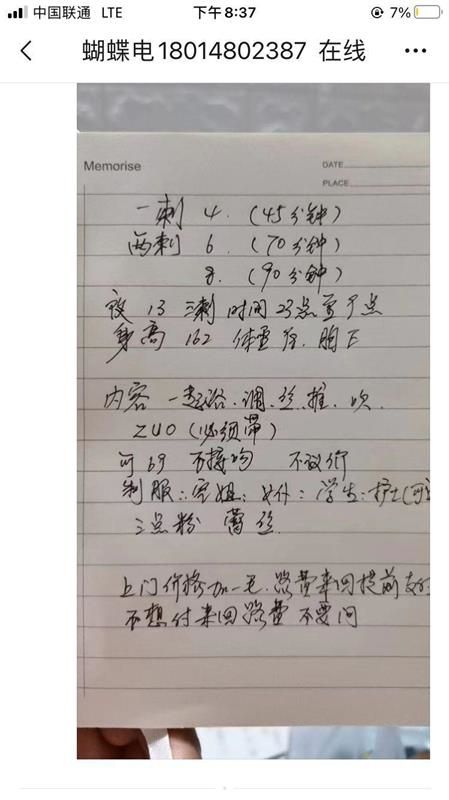 中国联通 LTE 下午8:37 7%
蝴蝶电18014802387 在线
Memorise
DATE
PLACE
一刺 4. (45分钟)
两刺 6. (70分钟)
8. (90分钟)
夜 13 三刺 时间 23点至7点
身高 162 体重 胸F
内容 一起浴.调.丝.推.吹.
ZUO (必须带)
可69 可接吻 不议价
制服: 空姐: 女仆: 学生: 护士(可
三点粉 蕾丝.
上门价格加一毛.路费来回提前
不想付来回路费 不要问